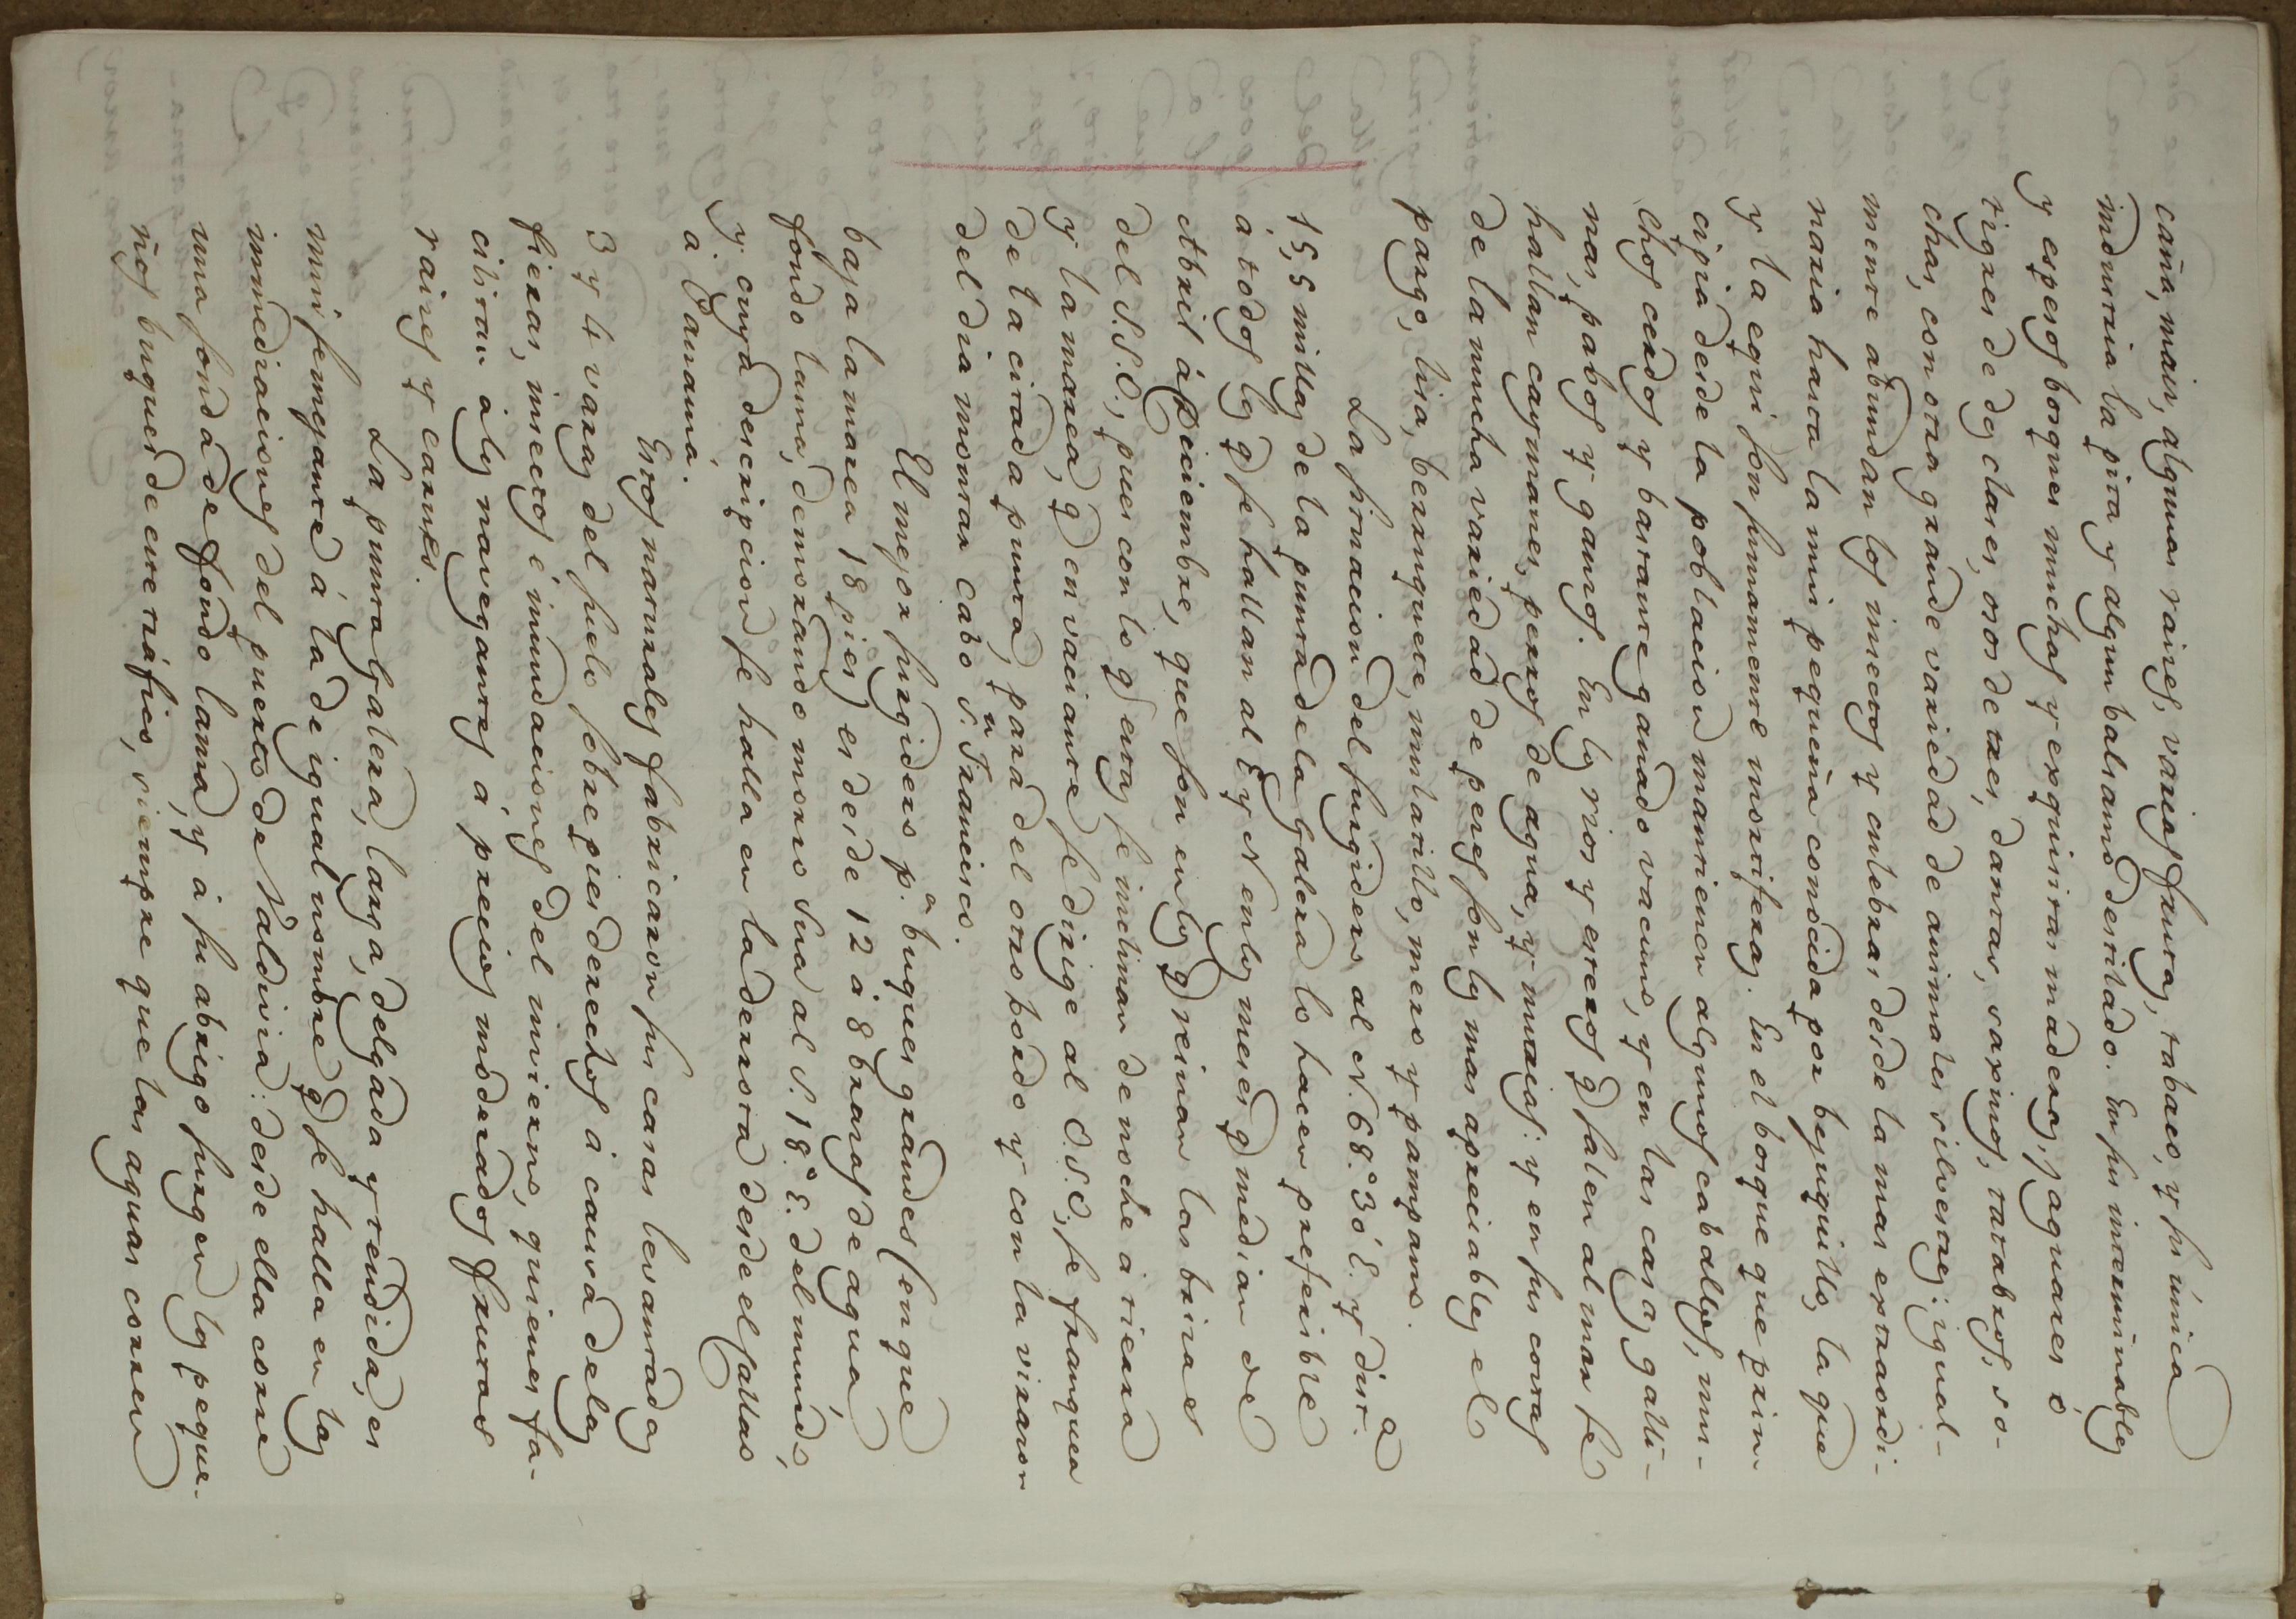 caña, mais, algunas raises, varias frutas, tabaco, y su única
industria la pita y algun balsamo destilado. En sus interminables
y espesos bosques muchas y exquisitas maderas, jaguares ó
tigres de dos clases, osos de tres, dantas, saxinos, tatabros, so-
chas, con otra grande variedad de animales silvestres: igual-
mente abundan los insectos y culebras desde la mas extraordi-
naria hasta la mui pequeña conocida por bejuquillo, la que
y la equis son sumamente mortiferas. En el bosque que prin
cipia desde la poblacion mantienen algunos caballos, mu-
chos cerdos y bastante ganado vacuno, y en las casas galli-
nas, pabos y gansos. En los rios y esteros q salen al mar se
hallan caymanes, perros de agua, y nutrias: y en sus costas
de la mucha variedad de peces son los mas apreciables el
pargo, lisa, berrugete, mulatillo, mero y pampano.
La situacion del surgidero al N. 68.° 30' E. y dist.a
15,5 millas de la punta de la Galera lo hacen preferible
á todos los q se hallan al E y N en los meses q median de
Abril á Diciembre, que son en los q reinan las brisas
del S.S.O., pues con lo q estas se inclinan de noche á tierra
y la marea, q en vaciante se dirige al O.S.O, se franquea
de la citada punta, para del otro bordo y con la virazon
del dia montar cabo S.n Francisco.
El mejor surgidero p.a buques grandes en que
baja la marea 18 pies es desde 12 á 8 brazas de agua
fondo lama, demorando morro Sua al S. 18.° E. del mundo,
y cuya descripcion se halla en la derrota desde el Callao
a Panamá.
Estos naturales fabricaron sus casas levantadas
3 y 4 varas del suelo sobre pies derechos á causa de las
fieras, insectos é inundaciones del invierno, quienes fa-
cilitan á los navegantes á precios moderados frutas
raises y carnes.
La punta Galera, larga, delgada y tendida, es
mui semejante á la de igual nombre q se halla en las
inmediaciones del puerto de Valdivia: desde ella corre
una sonda de fondo lama, y á su abrigo surgen los peque-
ños buques de este tráfico, siempre que las aguas corren